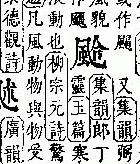 或作
又集韻
風貌
集韻郎丁
靈玉篇寒
動也柳宗元詩驚
凡風動物與物受
德觀詩
廣韻